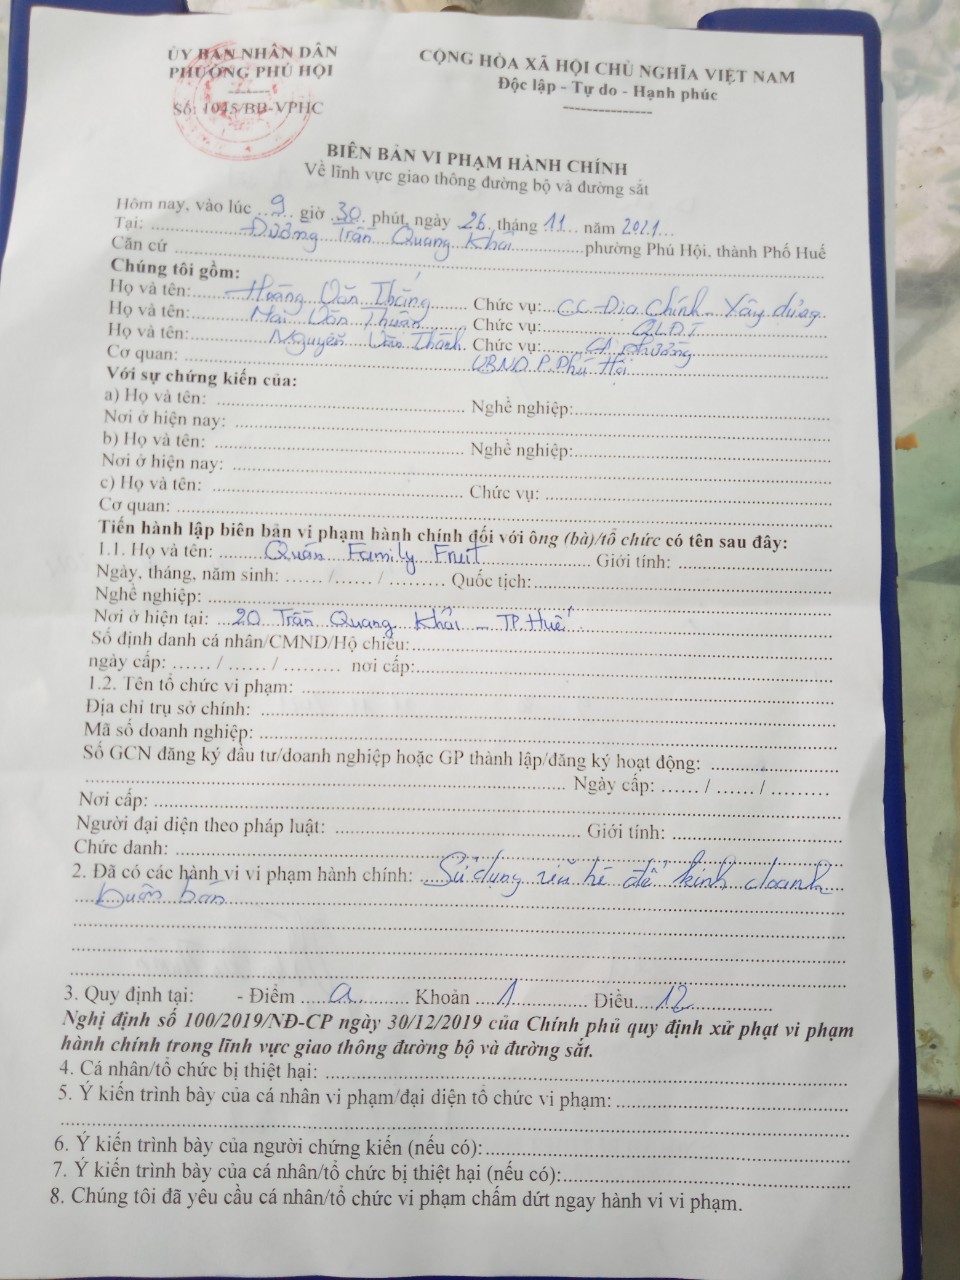 ỦY BAN NHÂN DÂN
PHƯỜNG PHÚ HỘI
Số: 1045/BB-VPHC
CỘNG HÒA XÃ HỘI CHỦ NGHĨA VIỆT NAM
Độc lập - Tự do - Hạnh phúc
BIÊN BẢN VI PHẠM HÀNH CHÍNH
Về lĩnh vực giao thông đường bộ và đường sắt
Hôm nay, vào lúc 9 giờ 30 phút, ngày 26 tháng 11 năm 2021
Tại: Đường Trần Quang Khải phường Phú Hội, thành Phố Huế
Căn cứ
Chúng tôi gồm:
Họ và tên: Hoàng Văn Thắng Chức vụ: CC-Địa Chính Xây dựng
Họ và tên: Mai Văn Thuận Chức vụ: QLĐT
Họ và tên: Nguyễn Văn Thành Chức vụ: CA phường
Cơ quan: UBND P. Phú Hội
Với sự chứng kiến của:
a) Họ và tên: Nghề nghiệp:
Nơi ở hiện nay:
b) Họ và tên: Nghề nghiệp:
Nơi ở hiện nay:
c) Họ và tên: Chức vụ:
Cơ quan:
Tiến hành lập biên bản vi phạm hành chính đối với ông (bà)/tổ chức có tên sau đây:
1.1. Họ và tên: Quán Family Fruit Giới tính:
Ngày, tháng, năm sinh: ...... /...... / ......... Quốc tịch:
Nghề nghiệp:
Nơi ở hiện tại: 20 Trần Quang Khải - TP. Huế
Số định danh cá nhân/CMND/Hộ chiếu:
ngày cấp: ...... / ...... / ......... nơi cấp:
1.2. Tên tổ chức vi phạm:
Địa chỉ trụ sở chính:
Mã số doanh nghiệp:
Số GCN đăng ký đầu tư/doanh nghiệp hoặc GP thành lập/đăng ký hoạt động:
Ngày cấp: ...... / ...... / .........
Nơi cấp:
Người đại diện theo pháp luật: Giới tính:
Chức danh:
2. Đã có các hành vi vi phạm hành chính: Sử dụng vỉa hè để kinh doanh
buôn bán
3. Quy định tại: - Điểm a Khoản 1 Điều 12
Nghị định số 100/2019/NĐ-CP ngày 30/12/2019 của Chính phủ quy định xử phạt vi phạm
hành chính trong lĩnh vực giao thông đường bộ và đường sắt.
4. Cá nhân/tổ chức bị thiệt hại:
5. Ý kiến trình bày của cá nhân vi phạm/đại diện tổ chức vi phạm:
6. Ý kiến trình bày của người chứng kiến (nếu có):
7. Ý kiến trình bày của cá nhân/tổ chức bị thiệt hại (nếu có):
8. Chúng tôi đã yêu cầu cá nhân/tổ chức vi phạm chấm dứt ngay hành vi vi phạm.